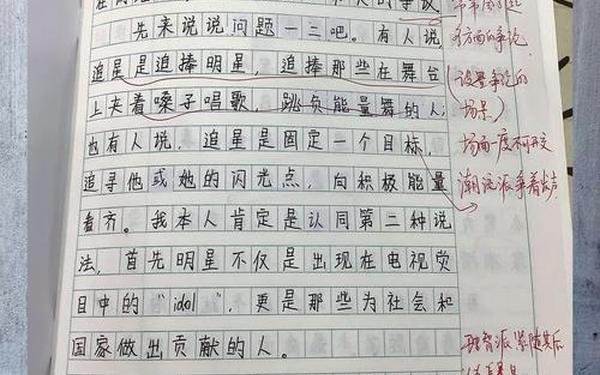 先来说说问题一三吧。有人说
追星是追捧明星，追捧那些在舞台
上夹着嗓子唱歌，跳负能量舞的人；
也有人说，追星是固定一个目标，
追寻他或她的闪光点，向积极能量
看齐。我本人肯定是认同第二种说
法，首先明星不仅是出现在电视荧
目中的“idol”，更是那些为社会和
国家做出贡献的人。
方面的争论
（设置争论的
场景）
场面一度不可开交
潮流派争着发声
理智派紧随其后